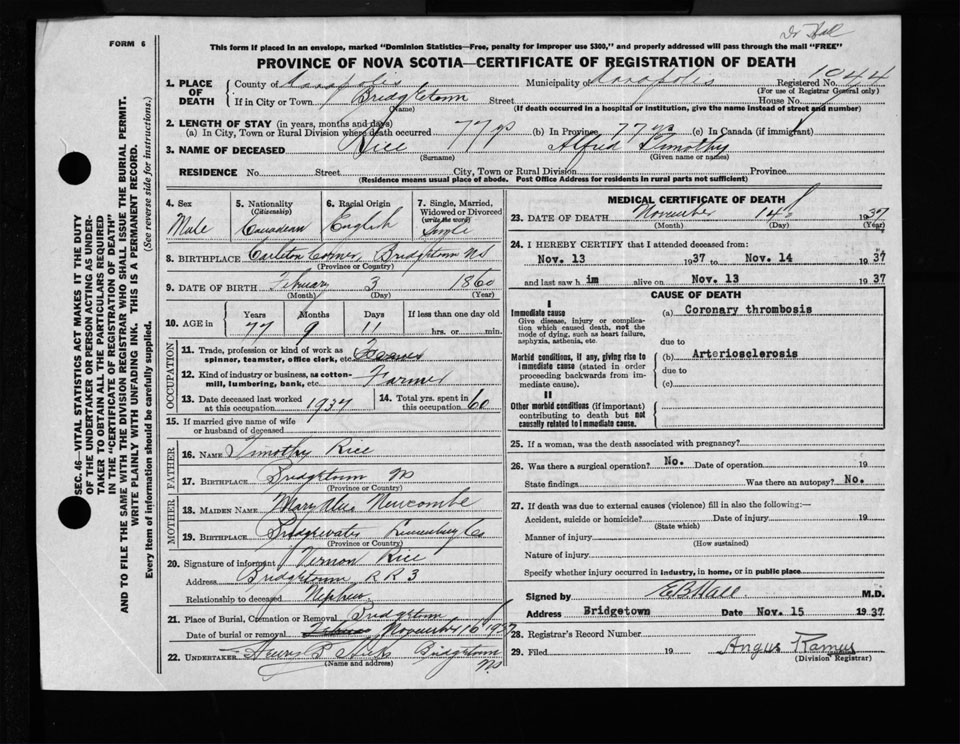 Dr Hall
FORM 6
This form if placed in an envelope, marked "Dominion Statistics—Free, penalty for improper use $300," and properly addressed will pass through the mail "FREE"
PROVINCE OF NOVA SCOTIA—CERTIFICATE OF REGISTRATION OF DEATH
1. PLACE OF DEATH
County of Annapolis Municipality of Annapolis Registered No. 1044
(For use of Registrar General only)
If in City or Town Bridgetown Street House No.
(Name) (If death occurred in a hospital or institution, give the name instead of street and number)
2. LENGTH OF STAY (in years, months and days)
(a) In City, Town or Rural Division where death occurred 77 yrs (b) In Province 77 yrs (c) In Canada (if immigrant)
3. NAME OF DECEASED Rice Alfred Timothy
(Surname) (Given name or names)
RESIDENCE No. Street City, Town or Rural Division Province
(Residence means usual place of abode. Post Office Address for residents in rural parts not sufficient)
4. Sex Male
5. Nationality (Citizenship) Canadian
6. Racial Origin English
7. Single, Married, Widowed or Divorced (write the word) Single
8. BIRTHPLACE Carlton Corner, Bridgetown NS
(Province or Country)
9. DATE OF BIRTH February 3 1860
(Month) (Day) (Year)
10. AGE in Years Months Days If less than one day old
77 9 11 hrs. or min.
OCCUPATION
11. Trade, profession or kind of work as spinner, teamster, office clerk, etc.
12. Kind of industry or business, as cotton-mill, lumbering, bank, etc. Farmer
13. Date deceased last worked at this occupation 1937
14. Total yrs. spent in this occupation 60
15. If married give name of wife or husband of deceased
FATHER
16. NAME Timothy Rice
17. BIRTHPLACE Bridgetown NS
(Province or Country)
MOTHER
18. MAIDEN NAME Mary Newcombe
19. BIRTHPLACE Bridgewater Lunenburg Co
(Province or Country)
20. Signature of informant Vernon Rice
Address Bridgetown R R 3
Relationship to deceased Nephew
21. Place of Burial, Cremation or Removal Bridgetown
Date of burial or removal November 16 1937
22. UNDERTAKER Hicks Bridgetown NS
(Name and address)
MEDICAL CERTIFICATE OF DEATH
23. DATE OF DEATH November 14 1937
(Month) (Day) (Year)
24. I HEREBY CERTIFY that I attended deceased from:
Nov. 13 1937 to Nov. 14 1937
and last saw him alive on Nov. 13 1937
CAUSE OF DEATH
I
Immediate cause
Give disease, injury or complication which caused death, not the mode of dying, such as heart failure, asphyxia, asthenia, etc.
(a) Coronary thrombosis
due to
Morbid conditions, if any, giving rise to immediate cause (stated in order proceeding backwards from immediate cause).
(b) Arteriosclerosis
due to
(c)
II
Other morbid conditions (if important) contributing to death but not causally related to immediate cause.
25. If a woman, was the death associated with pregnancy?
26. Was there a surgical operation? No. Date of operation 19
State findings Was there an autopsy? No.
27. If death was due to external causes (violence) fill in also the following:—
Accident, suicide or homicide? Date of injury 19
(State which)
Manner of injury
(How sustained)
Nature of injury
Specify whether injury occurred in industry, in home, or in public place
Signed by E B Hall M.D.
Address Bridgetown Date Nov. 15 1937
28. Registrar's Record Number
29. Filed 19 Angus Ramey
(Division Registrar)
SEC. 46—VITAL STATISTICS ACT MAKES IT THE DUTY
OF THE UNDERTAKER OR PERSON ACTING AS UNDERTAKER TO OBTAIN ALL THE PARTICULARS REQUIRED
IN THE "CERTIFICATE OF REGISTRATION OF DEATH"
AND TO FILE THE SAME WITH THE DIVISION REGISTRAR WHO SHALL ISSUE THE BURIAL PERMIT.
WRITE PLAINLY WITH UNFADING INK. THIS IS A PERMANENT RECORD.
Every item of information should be carefully supplied. (See reverse side for instructions.)